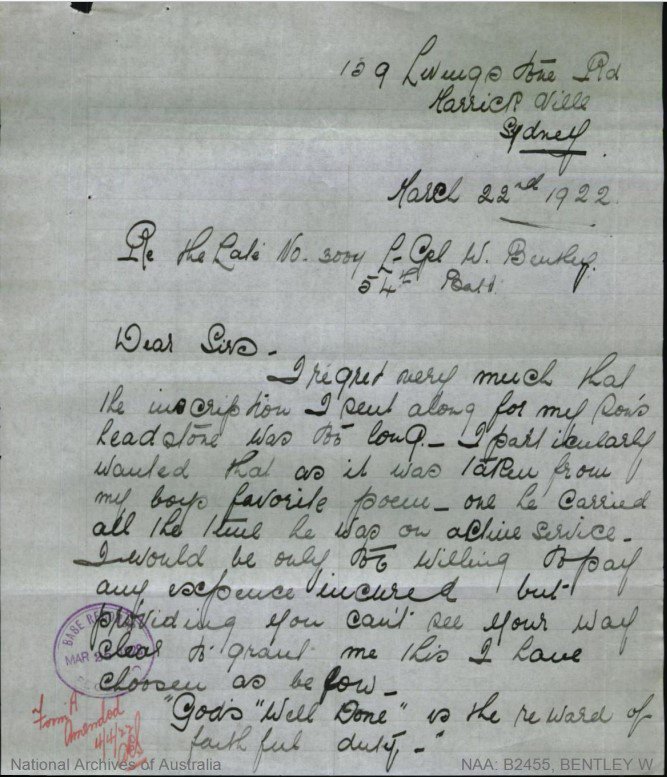 159 Livingstone Rd
Marrickville
Sydney
March 22nd 1922
Re the Late No. 3004 L-Cpl W. Bentley.
54th Batt
Dear Sirs -
I regret very much that
the inscription I sent along for my son's
headstone was too long - I particularly
wanted that as it was taken from
my boys favorite poem - one he carried
all the time he was on active service -
I would be only too willing to pay
any expence incured but
providing you can't see your way
clear to grant me this I have
choosen as below -
"God's "Well Done" is the reward of
faithful duty -"
BASE RECORDS
MAR
Form A
Amended
4/4/22
National Archives of Australia
NAA: B2455, BENTLEY W